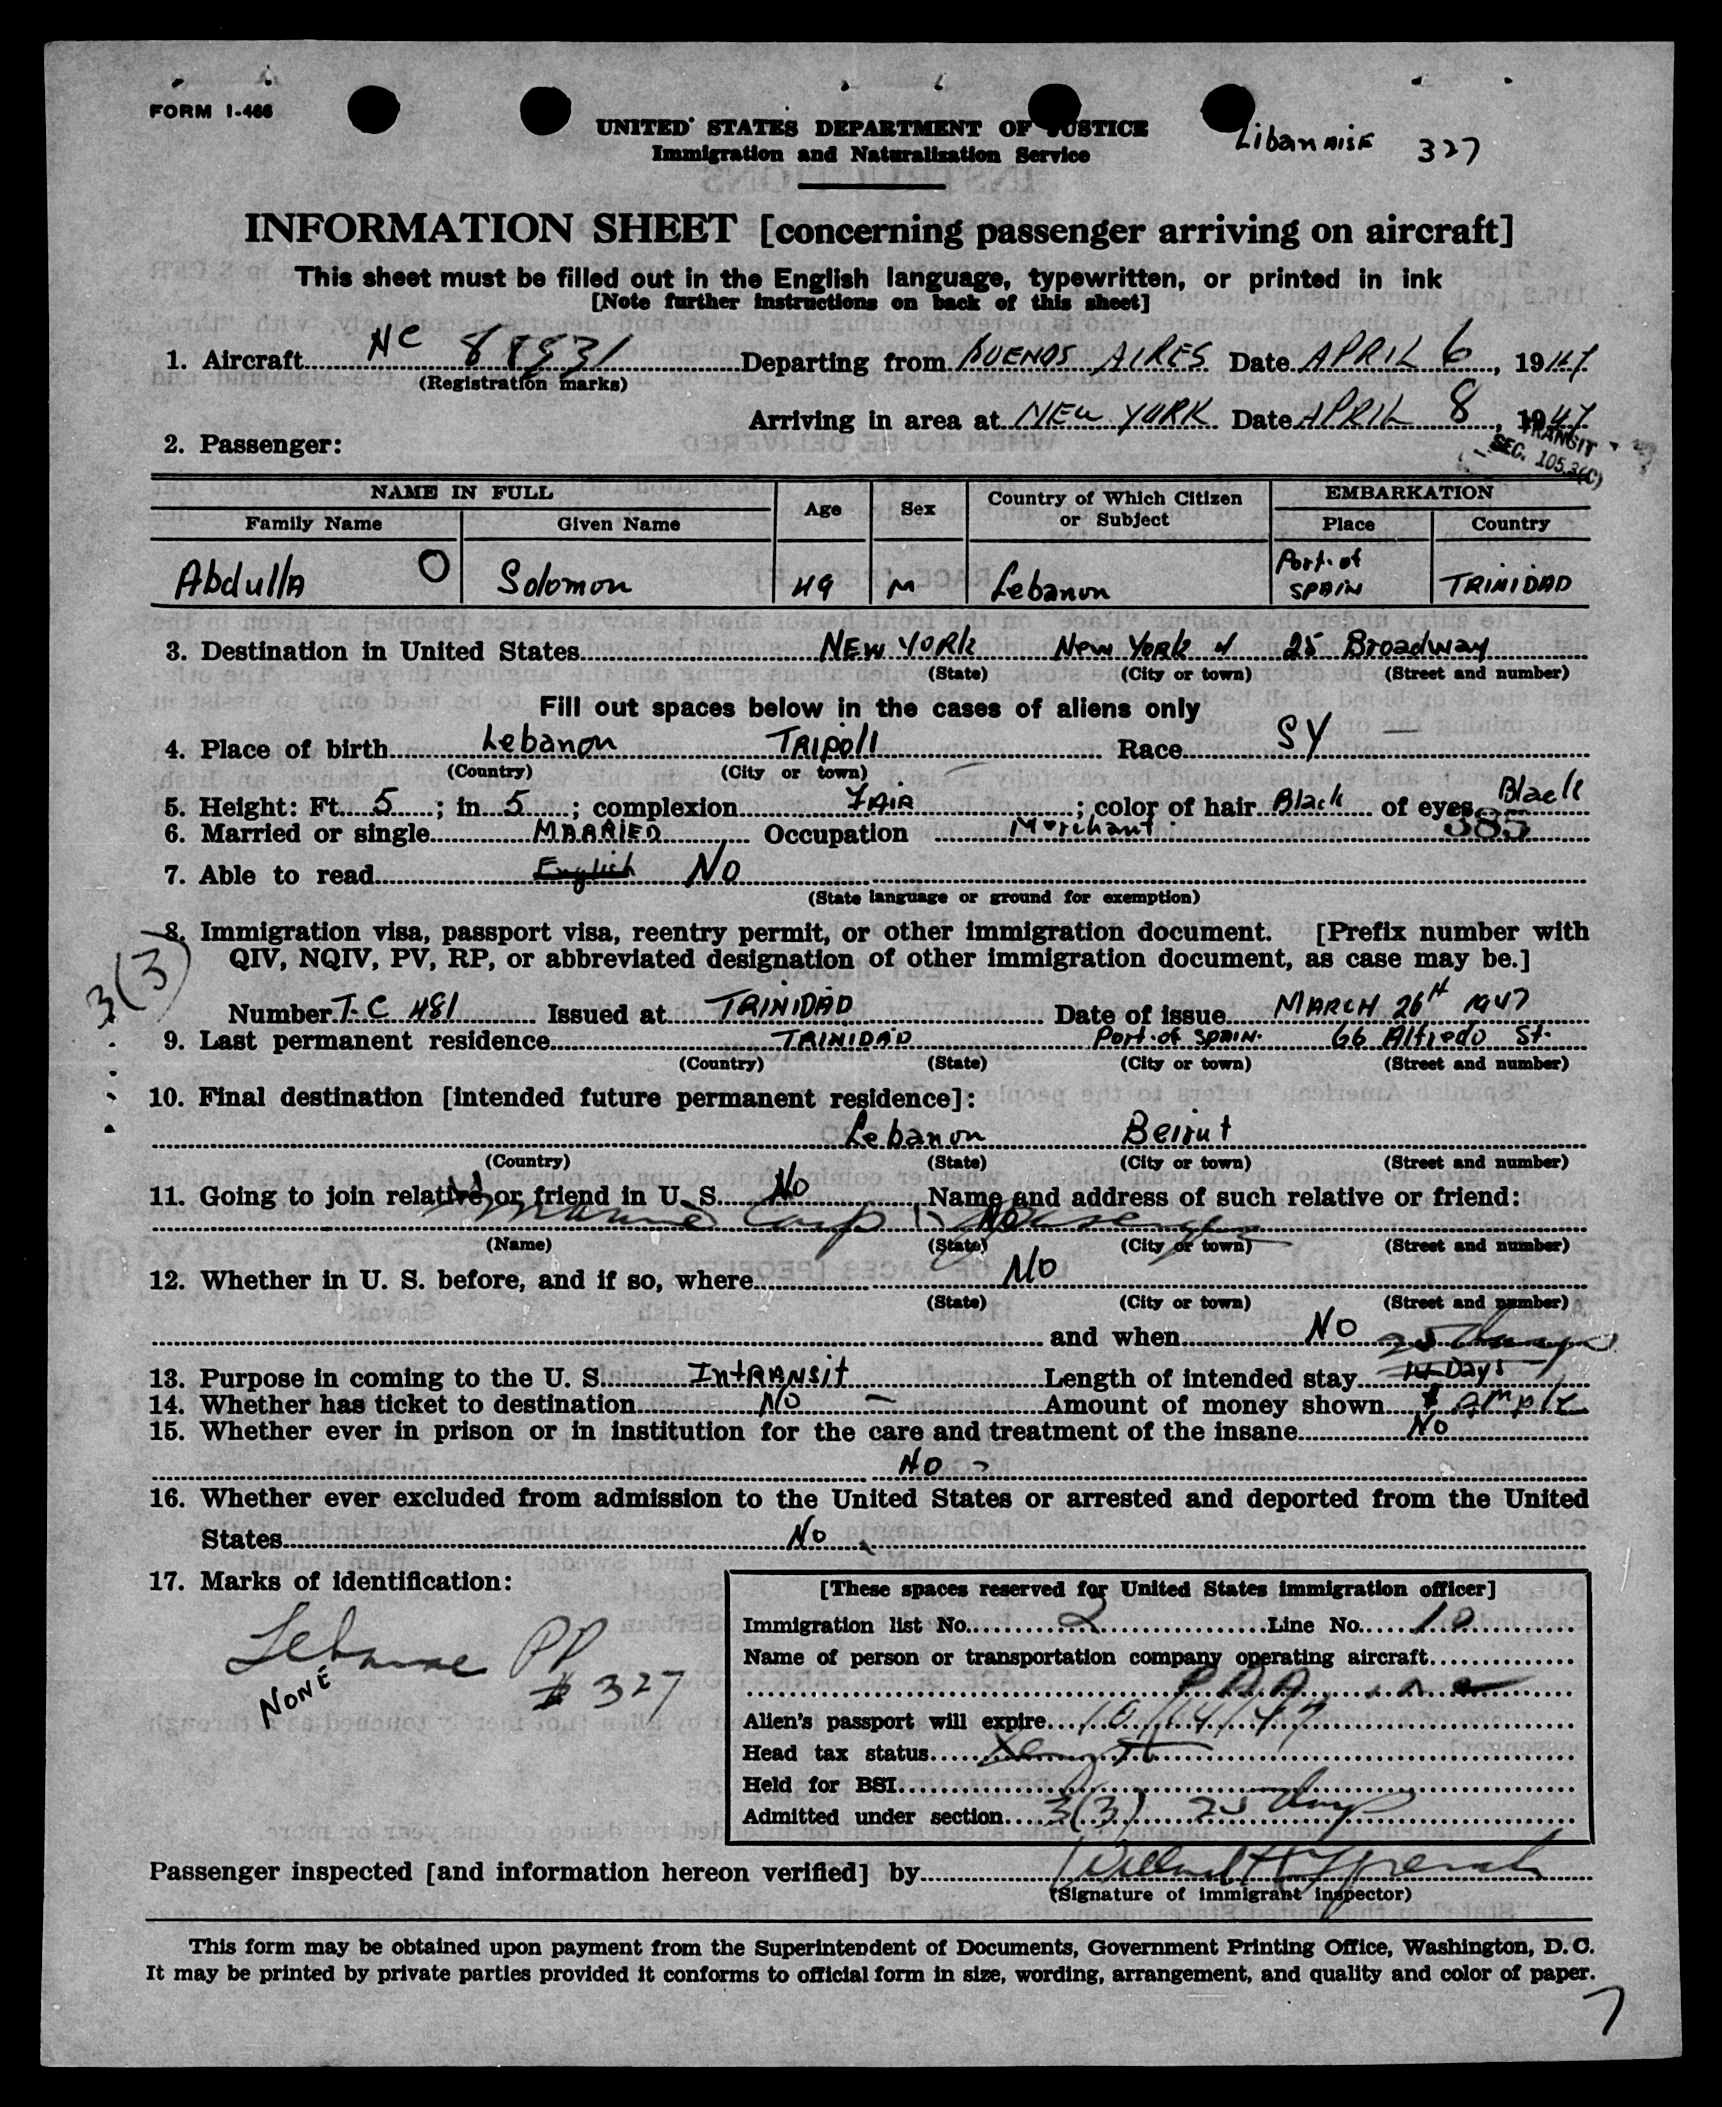 FORM I-466
UNITED STATES DEPARTMENT OF JUSTICE
Immigration and Naturalization Service
LibanAISE 327
INFORMATION SHEET [concerning passenger arriving on aircraft]
This sheet must be filled out in the English language, typewritten, or printed in ink
[Note further instructions on back of this sheet]
1. Aircraft NC Departing from BUENOS AIRES Date APRIL 6, 1947
(Registration marks)
Arriving in area at NEW YORK Date APRIL 8, 1947
TRANSIT
SEC. 105.3(C)
2. Passenger:
NAME IN FULL Age Sex Country of Which Citizen or Subject EMBARKATION
Family Name Given Name Place Country
Abdulla O Solomon 49 M Lebanon Port of SPAIN TRINIDAD
3. Destination in United States NEW YORK New York 25 Broadway
(State) (City or town) (Street and number)
Fill out spaces below in the cases of aliens only
4. Place of birth Lebanon TRIPOLI Race SY —
(Country) (City or town)
5. Height: Ft. 5; in. 5; complexion FAIR; color of hair Black of eyes Black
385
6. Married or single MARRIED Occupation Merchant
7. Able to read English No
(State language or ground for exemption)
8. Immigration visa, passport visa, reentry permit, or other immigration document. [Prefix number with
QIV, NQIV, PV, RP, or abbreviated designation of other immigration document, as case may be.]
3(3)
Number T.C 481 Issued at TRINIDAD Date of issue MARCH 26H 1947
9. Last permanent residence TRINIDAD Port of SPAIN. 66 Alfredo St.
(Country) (State) (City or town) (Street and number)
10. Final destination [intended future permanent residence]:
Lebanon Beirut
(Country) (State) (City or town) (Street and number)
11. Going to join relative or friend in U. S. No Name and address of such relative or friend:
No
(Name) (State) (City or town) (Street and number)
12. Whether in U. S. before, and if so, where No
(State) (City or town) (Street and number)
and when No
25 days
13. Purpose in coming to the U. S. IntRANSit Length of intended stay 14 Days
14. Whether has ticket to destination NO — Amount of money shown $ Ample
15. Whether ever in prison or in institution for the care and treatment of the insane No
NO -
16. Whether ever excluded from admission to the United States or arrested and deported from the United
States No
17. Marks of identification:
Lebanese PP
# 327
NONE
[These spaces reserved for United States immigration officer]
Immigration list No. 2 Line No. 10
Name of person or transportation company operating aircraft
P.A.A. Inc
Alien's passport will expire 10/14/47
Head tax status
Held for BSI
Admitted under section 3(3) 25 days
Passenger inspected [and information hereon verified] by
(Signature of immigrant inspector)
This form may be obtained upon payment from the Superintendent of Documents, Government Printing Office, Washington, D. C.
It may be printed by private parties provided it conforms to official form in size, wording, arrangement, and quality and color of paper.
7